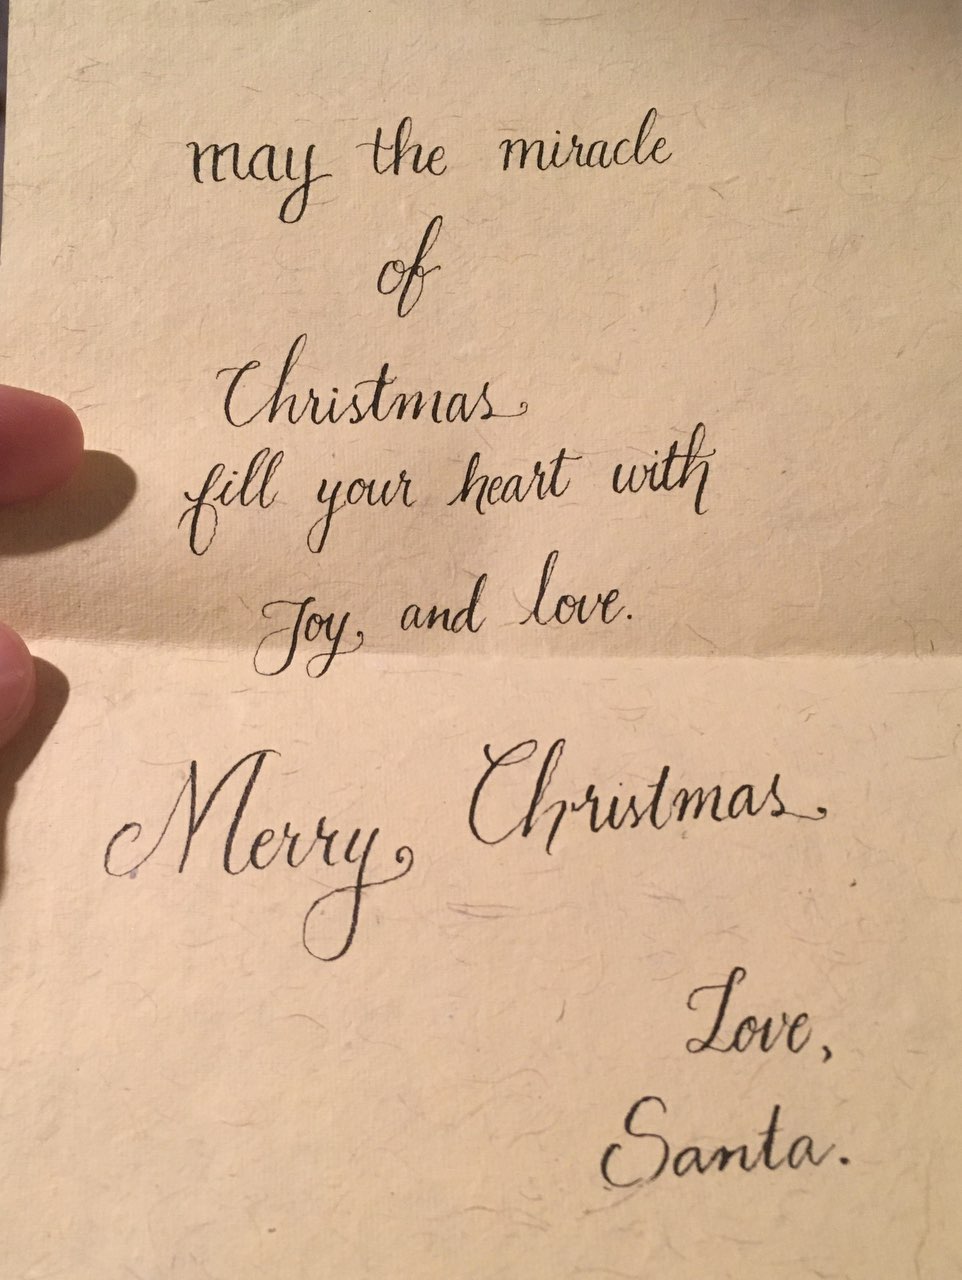 may the miracle
of
Christmas
fill your heart with
Joy, and love.
Merry Christmas
Love,
Santa.